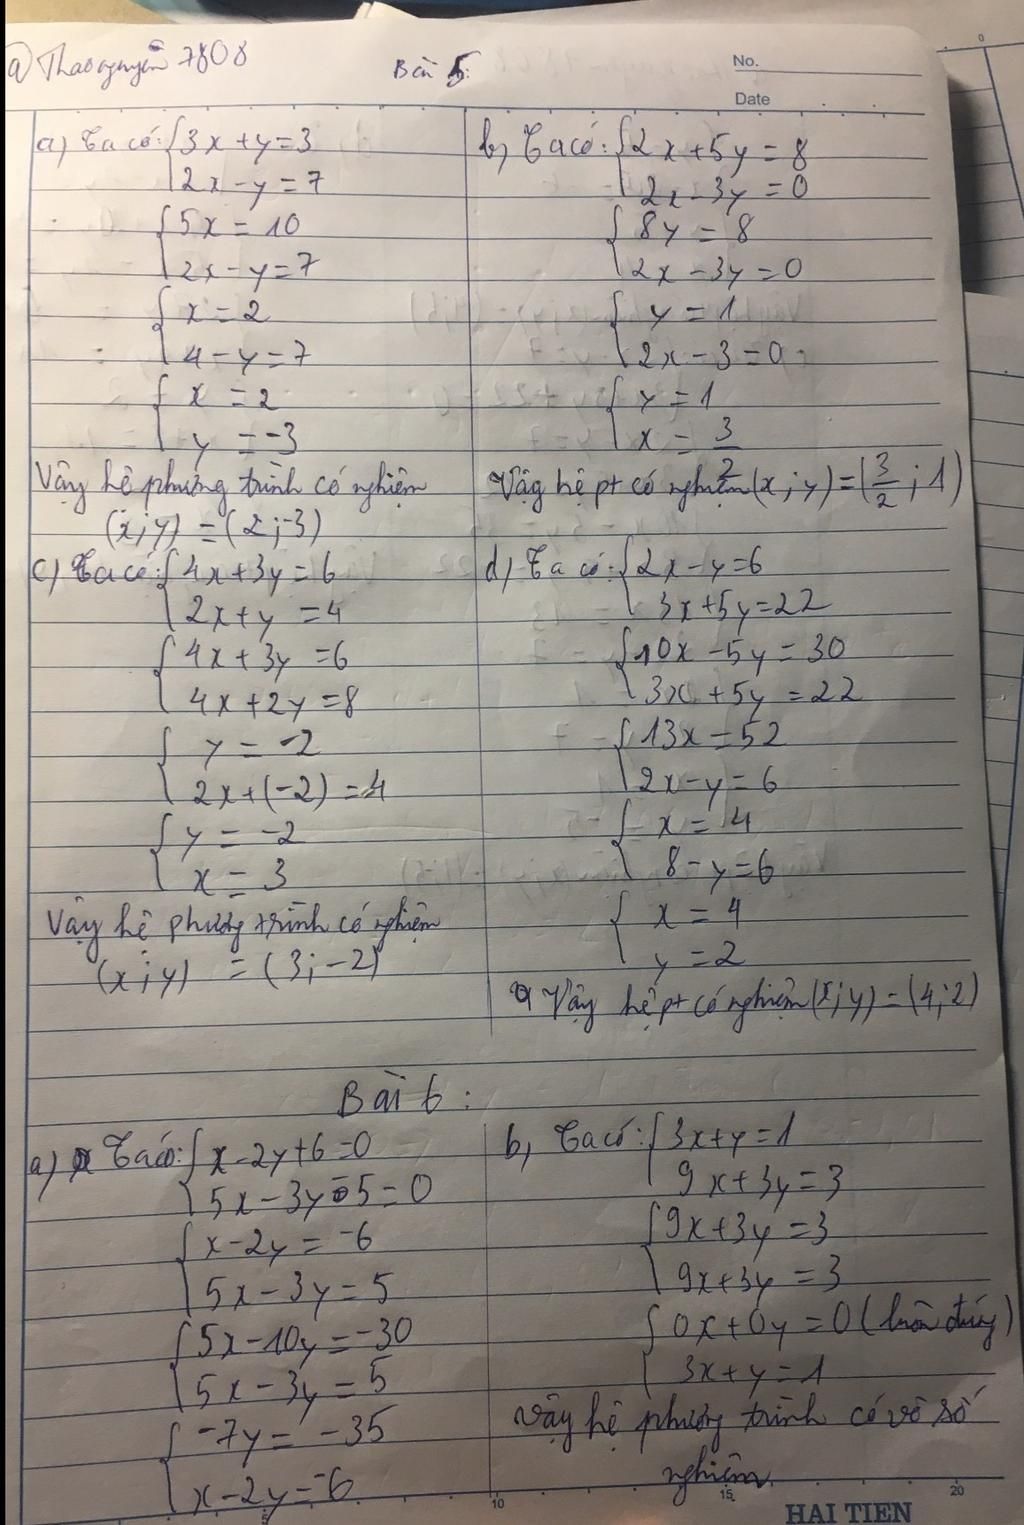 @Thaonguyên 7808
Bài 5:
No.
Date
a) Ta có: {3x+y=3
2x-y=7
{5x=10
2x-y=7
{x=2
4-y=7
{x=2
y=-3
Vậy hệ phương trình có nghiệm
(x;y)=(2;-3)
b) Ta có: {2x+5y=8
2x-3y=0
{8y=8
2x-3y=0
{y=1
2x-3=0
{y=1
x=3/2
Vậy hệ pt có nghiệm (x;y)=(3/2;1)
c) Ta có: {4x+3y=6
2x+y=4
{4x+3y=6
4x+2y=8
{y=-2
2x+(-2)=4
{y=-2
x=3
Vậy hệ phương trình có nghiệm
(x;y) = (3;-2)
d) Ta có: {2x-y=6
3x+5y=22
{10x-5y=30
3x+5y=22
{13x=52
2x-y=6
{x=4
8-y=6
{x=4
y=2
Vậy hệ pt có nghiệm (x;y)=(4;2)
Bài 6:
a) Ta có: {x-2y+6=0
5x-3y-5=0
{x-2y=-6
5x-3y=5
{5x-10y=-30
5x-3y=5
{-7y=-35
x-2y=-6
b, Ta có: {3x+y=1
9x+3y=3
{9x+3y=3
9x+3y=3
{0x+0y=0 (luôn đúng)
3x+y=1
Vậy hệ phương trình có vô số
nghiệm
5 10 15 20
HAI TIEN